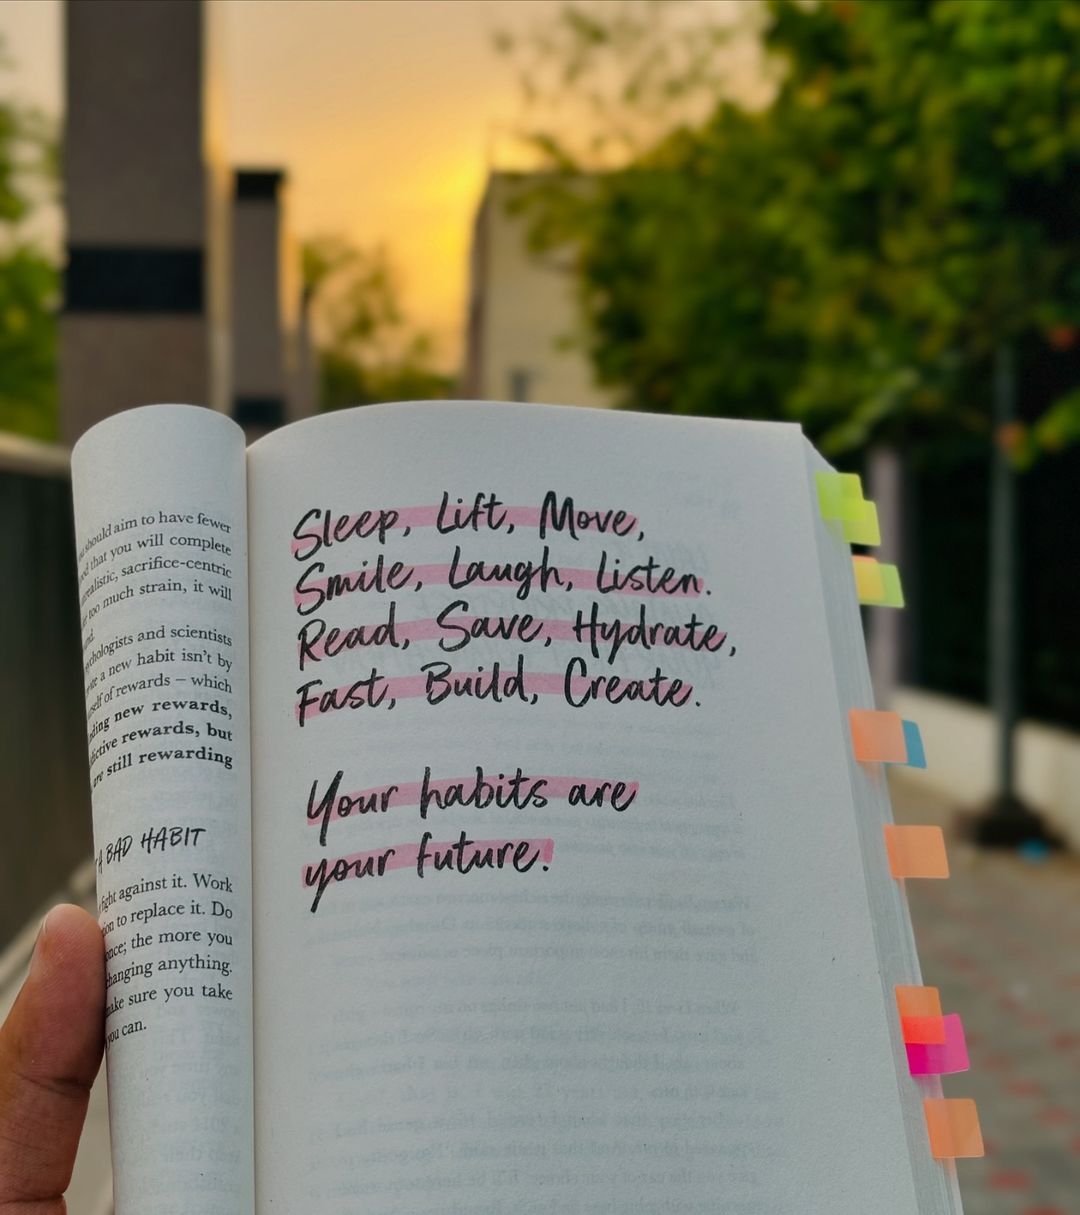 should aim to have fewer
that you will complete
sacrifice-centric
too much strain, it will
and scientists
a new habit isn't by
of rewards – which
new rewards,
rewards, but
are still rewarding
A BAD HABIT
fight against it. Work
to replace it. Do
the more you
changing anything.
make sure you take
you can.
Sleep, Lift, Move,
Smile, Laugh, Listen.
Read, Save, Hydrate,
Fast, Build, Create.
Your habits are
your future.